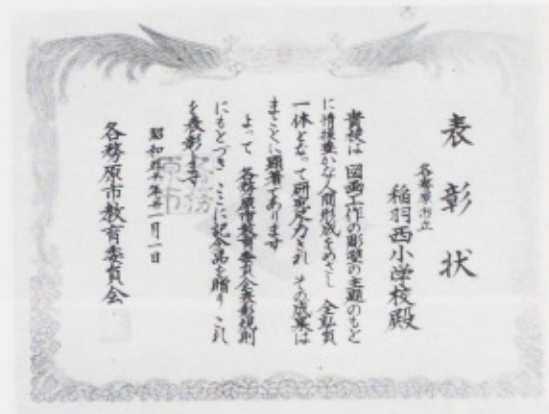 表彰状
各務原市立
稲羽西小学校殿
貴校は 図画工作の彫塑の主題のもと
に情操豊かな人間形成をめざし 全職員
一体となって研究尽力され その成果は
まことに顕著であります
よって 各務原市教育委員会表彰規則
にもとづき ここに記念品を贈り これ
を表彰します
昭和 年十一月一日
各務原市教育委員会